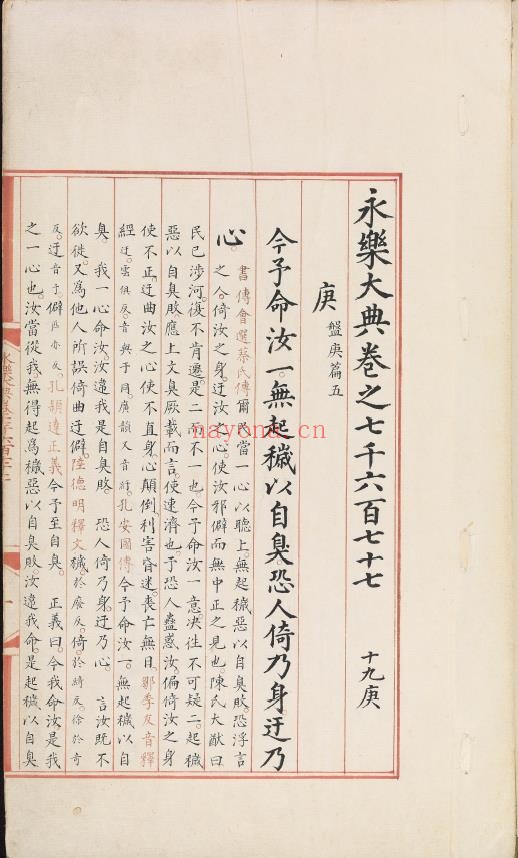 永樂大典卷之七千六百七十七 十九庚
庚 盤庚篇五
今予命汝一無起穢以自臭恐人倚乃身迂乃
心 書傳會選蔡氏傳爾民當一心以聽上無起穢惡以自臭敗恐浮言
之人倚汝之身迂汝之心使汝邪僻而無中正之見也陳氏大猷曰
民已涉河復不肯遷是二而不一也今予命汝一意決往不可疑二起穢
惡以自臭敗應上文臭厥載而言使速濟也予恐人蠱惑汝偏倚汝之身
使不正迂曲汝之心使不直身心顛倒利害昏迷喪亡無日鄒季友音釋
經迂雲俱反音與于同廣韻又音紆孔安國傳今予命汝一無起穢以自
臭 我一心命汝汝違我是自臭敗 恐人倚乃身迂乃心 言汝既不
欲徙又爲他人所誤倚曲迂僻陸德明釋文穢於廢反倚於綺反徐於奇
反迂音于僻匹亦反孔穎達正義今予至自臭 正義曰今我命汝是我
之一心也汝當從我無得起爲穢惡以自臭敗汝違我命是起穢以自臭
nayona.cn